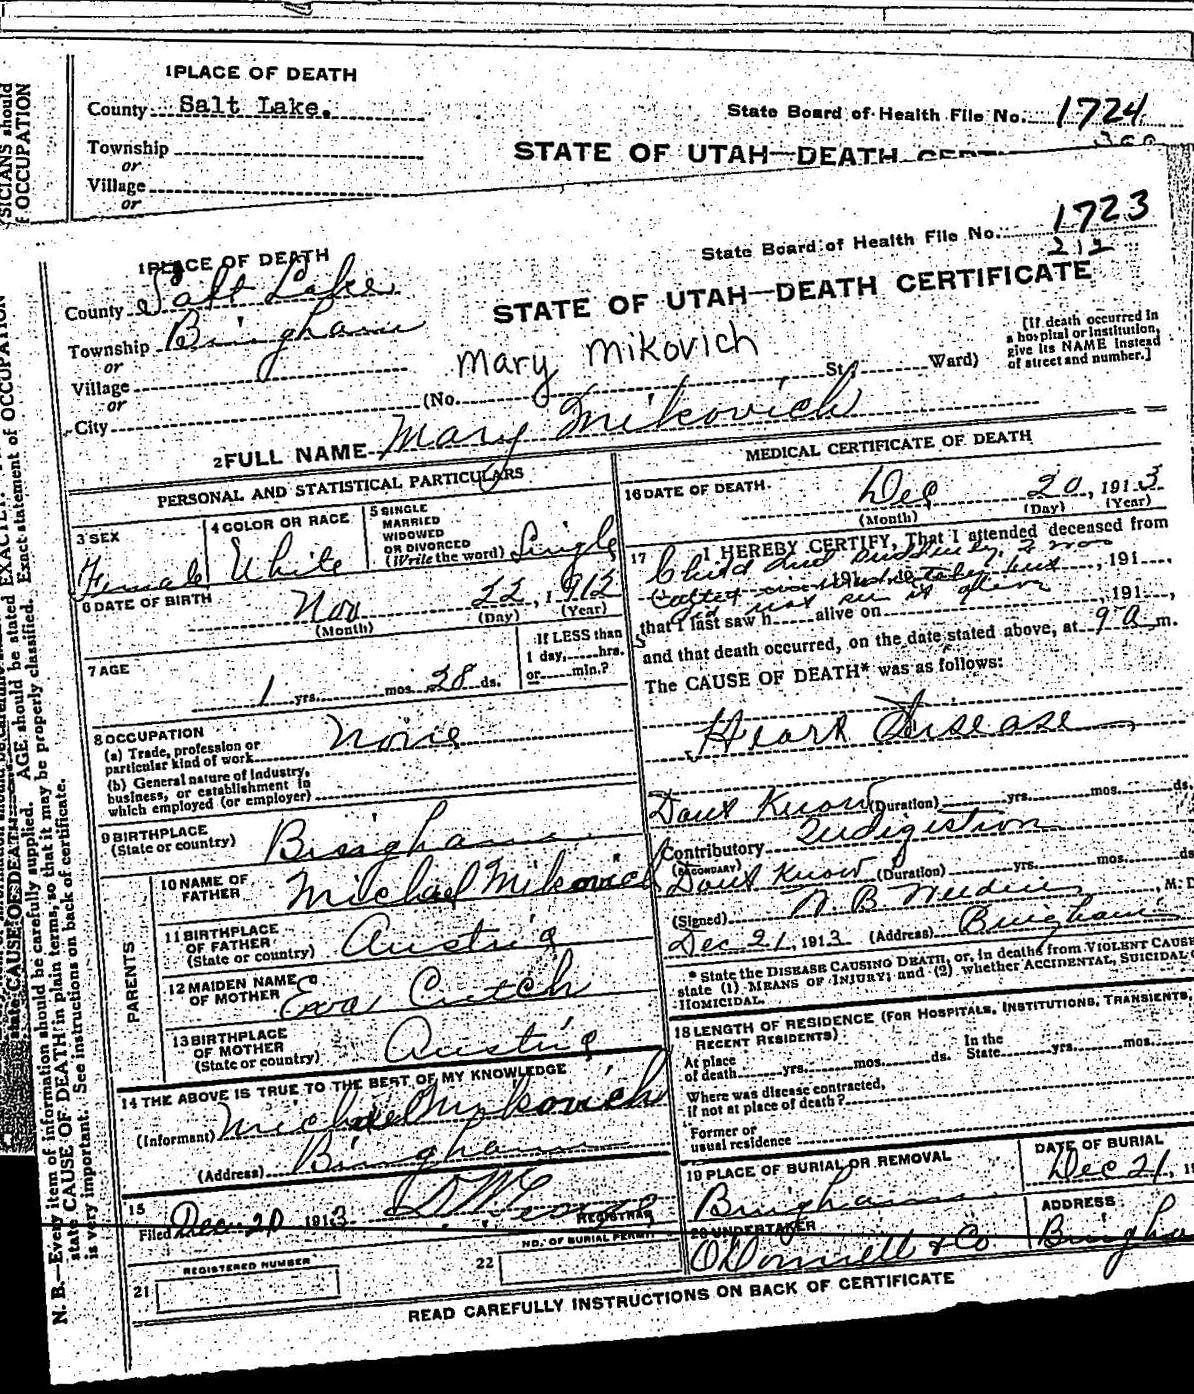 1 PLACE OF DEATH
County Salt Lake.
State Board of Health File No. 1724
Township
or
Village
or
STATE OF UTAH—DEATH
YSICIANS should
F OCCUPATION
1 PLACE OF DEATH
State Board of Health File No. 1723
212
County Salt Lake
STATE OF UTAH—DEATH CERTIFICATE
Township Bingham
or
Village
or
City
Mary Mikovich
(No. St. Ward)
[If death occurred in
a hospital or institution,
give its NAME instead
of street and number.]
2 FULL NAME Mary Mikovich
PERSONAL AND STATISTICAL PARTICULARS
3 SEX Female
4 COLOR OR RACE White
5 SINGLE
MARRIED
WIDOWED
OR DIVORCED
(Write the word) Single
6 DATE OF BIRTH
Nov 22, 1912
(Month) (Day) (Year)
7 AGE
1 yrs. mos. 28 ds.
If LESS than
1 day, hrs.
or min.?
8 OCCUPATION
(a) Trade, profession or
particular kind of work None
(b) General nature of Industry,
business, or establishment in
which employed (or employer)
9 BIRTHPLACE
(State or country) Bingham
PARENTS
10 NAME OF
FATHER Michael Mikovich
11 BIRTHPLACE
OF FATHER
(State or country) Austria
12 MAIDEN NAME
OF MOTHER Eva Cutch
13 BIRTHPLACE
OF MOTHER
(State or country) Austria
14 THE ABOVE IS TRUE TO THE BEST OF MY KNOWLEDGE
(Informant) Michael Mikovich
(Address) Bingham
15
Filed Dec 20 1913
REGISTRAR
REGISTERED NUMBER
21
NO. OF BURIAL PERMIT
22
MEDICAL CERTIFICATE OF DEATH
16 DATE OF DEATH
Dec 20, 1913
(Month) (Day) (Year)
17 I HEREBY CERTIFY, That I attended deceased from
Child died suddenly, I was
called but, 191
did not see it alive, 191,
that I last saw h alive on
and that death occurred, on the date stated above, at 9 a m.
The CAUSE OF DEATH* was as follows:
Heart Disease
Dont Know (Duration) yrs. mos. ds.
Contributory Indigestion
(SECONDARY)
Dont Know (Duration) yrs. mos. ds
(Signed) M. D
Dec 21, 1913 (Address) Bingham
* State the DISEASE CAUSING DEATH, or, in deaths from VIOLENT CAUSE
state (1) MEANS OF INJURY; and (2) whether ACCIDENTAL, SUICIDAL
HOMICIDAL.
18 LENGTH OF RESIDENCE (FOR HOSPITALS, INSTITUTIONS, TRANSIENTS,
RECENT RESIDENTS)
At place
of death yrs. mos. ds.
In the
State yrs. mos.
Where was disease contracted,
if not at place of death?
Former or
usual residence
19 PLACE OF BURIAL OR REMOVAL
Bingham
DATE OF BURIAL
Dec 21, 19
20 UNDERTAKER
O'Donnell & Co.
ADDRESS
Bingha
READ CAREFULLY INSTRUCTIONS ON BACK OF CERTIFICATE
N. B.—Every item of information should be carefully supplied. AGE should be stated EXACTLY.
state CAUSE OF DEATH in plain terms, so that it may be properly classified. Exact statement of OCCUPATION
is very important. See instructions on back of certificate.